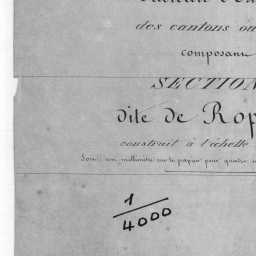 des cantons ou
composant
SECTION
dite de Rop
construit à l'échelle
Soit un millimètre sur le papier pour quatre
1
4000